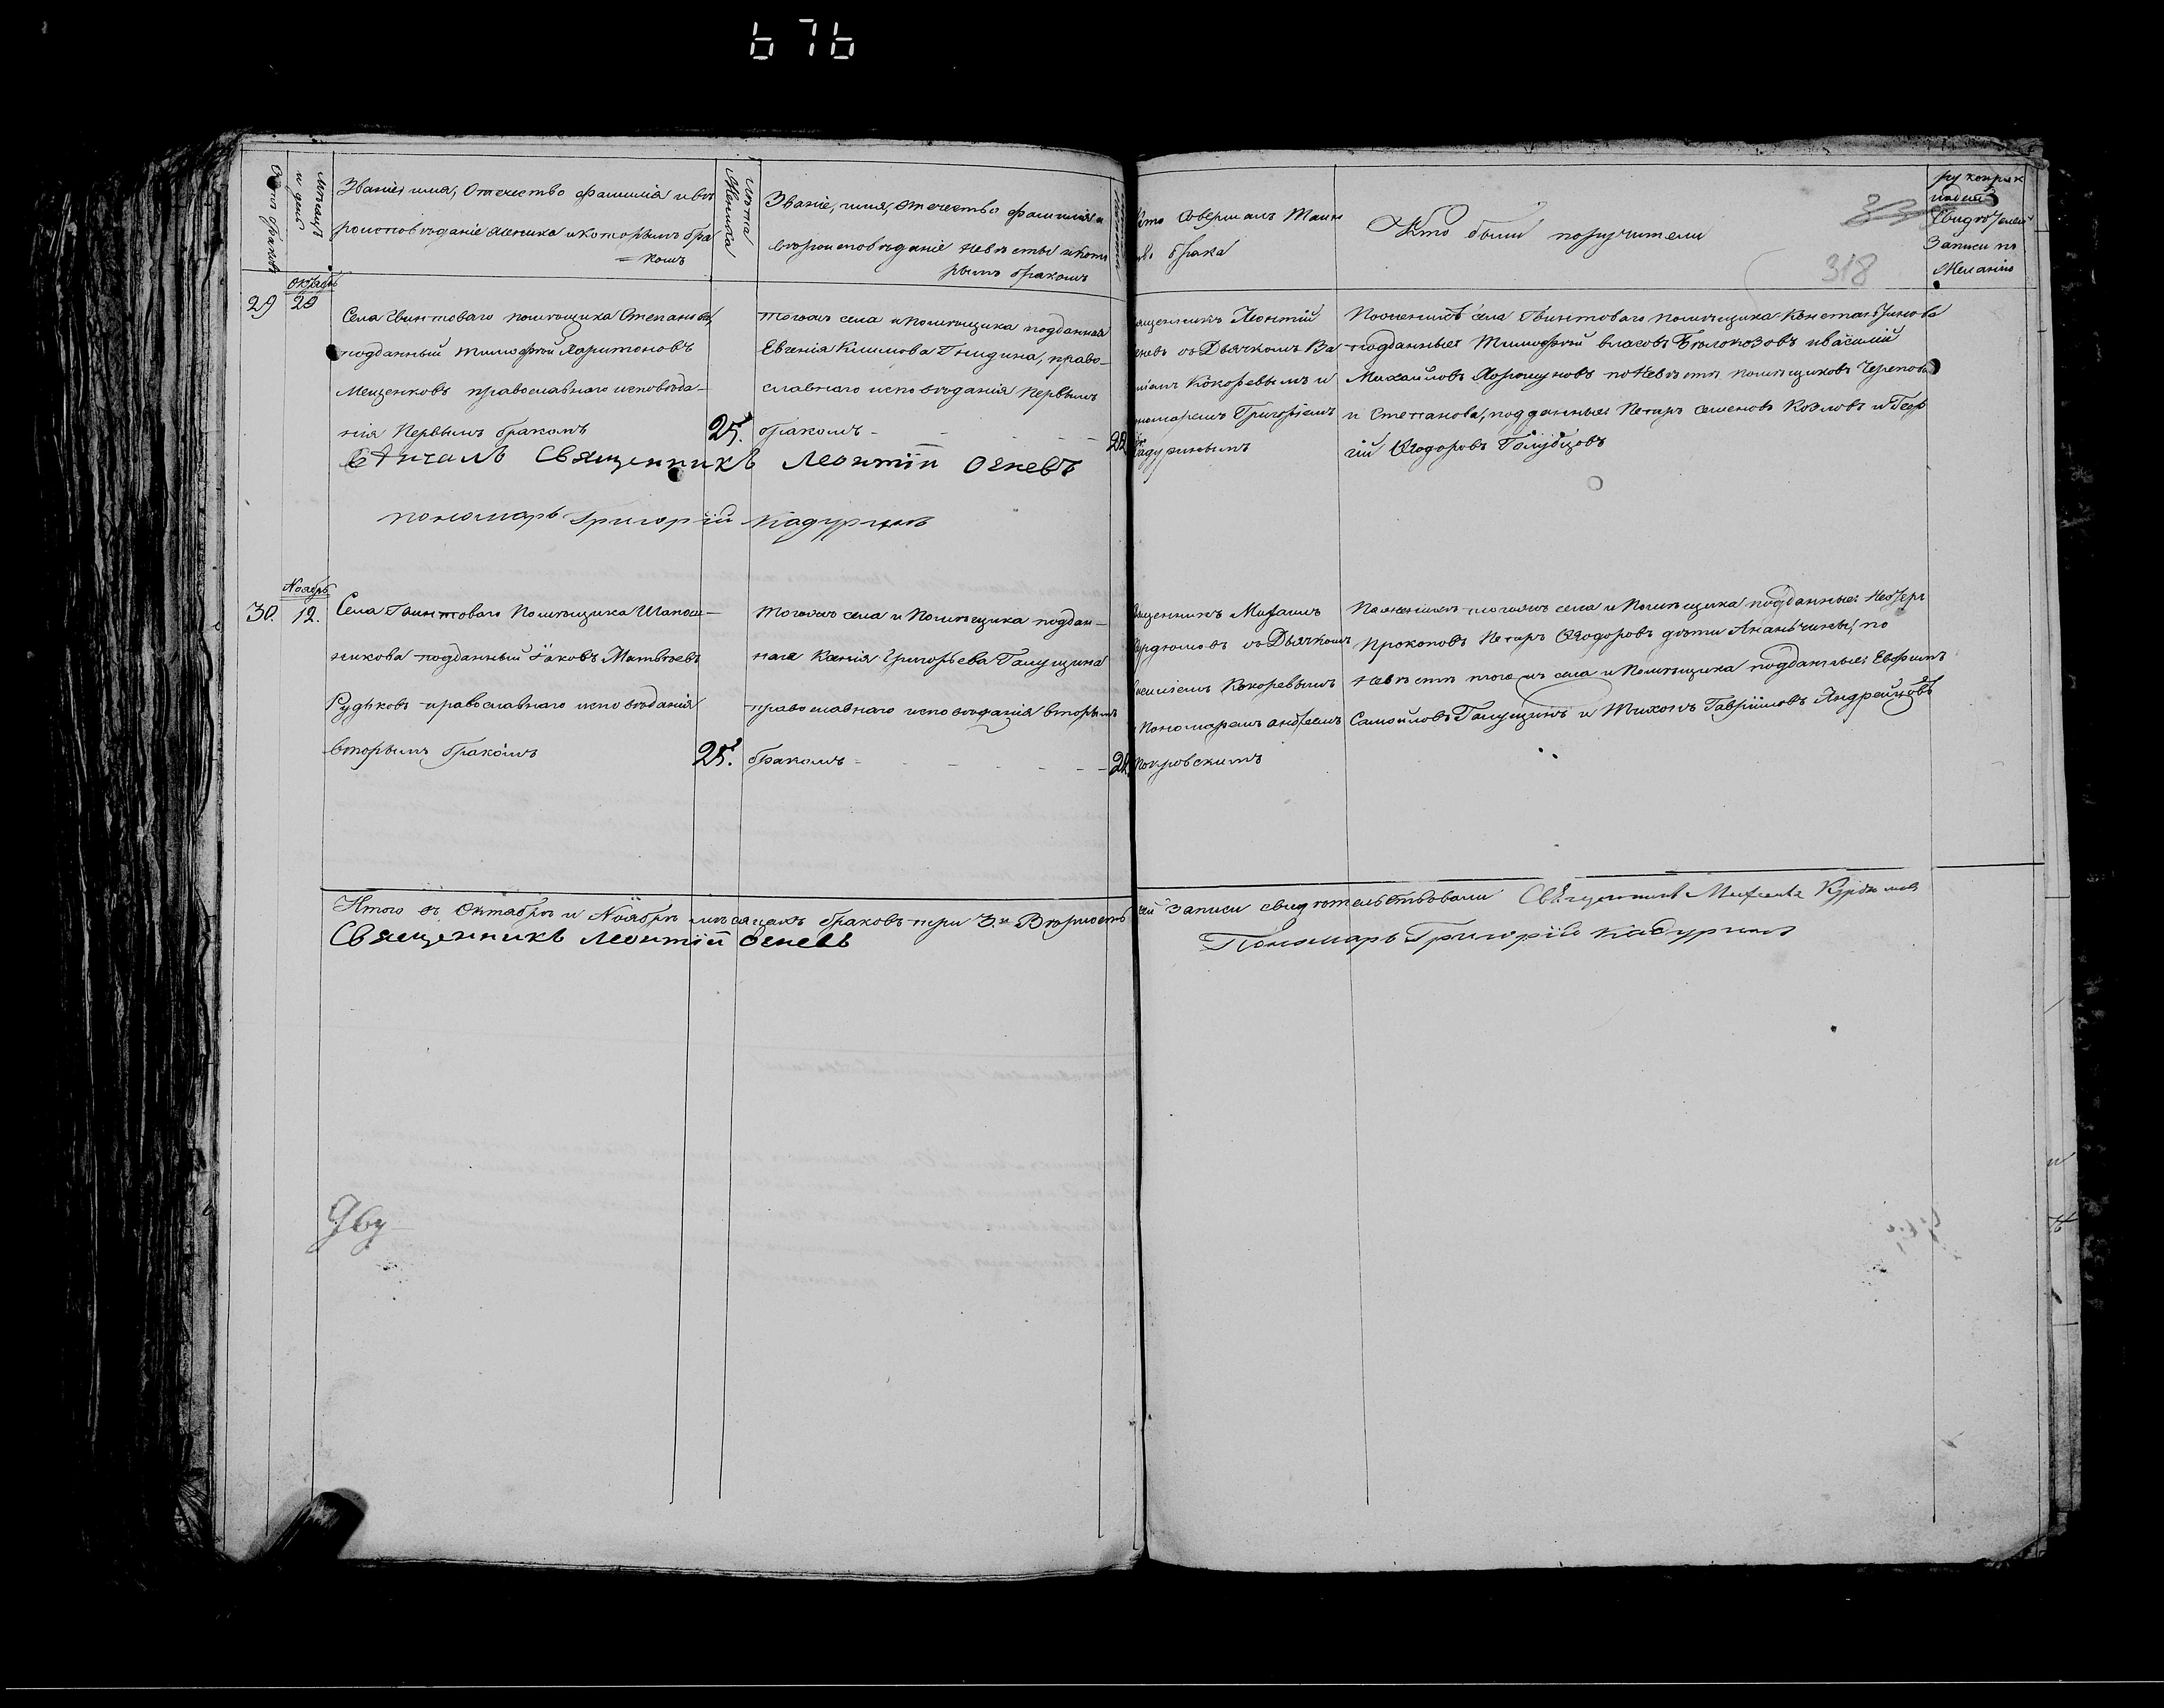 676
Счетъ браковъ
Мѣсяцъ и день
Званіе, имя, Отечество фамилія и вѣ
роисповѣданіе жениха и которымъ бра
= комъ
Лѣта Жениха
Званіе, имя, отечество фамилія и
вѣроисповѣданіе невѣсты и кото
рымъ бракомъ
Кто совершалъ Таин
во брака
Кто были поручители
318
Записи по
Желанію
29
Октябрь
20
Села Гвинтоваго помѣщика Степанова,
подданный Тимофей Харитоновъ
Мещенковъ православнаго исповѣда-
нія Первымъ бракомъ
25.
Тогожъ села и помѣщика подданная
Евгенія Климова Гнидина, право-
славнаго исповѣданія Первымъ
бракомъ
ященникъ Леонтій
гневъ съ Дьячкомъ Ва
иліемъ Кокоревымъ и
ономаремъ Григоріемъ
адуринымъ
По женихѣ села Гвинтоваго помѣщика Константинова
подданные Тимофей Власовъ Бѣлокозовъ и Василій
Михайловъ Хоришуновъ по Невѣстѣ помѣщиковъ Черепова
и Степанова, подданные Петръ Семеновъ Козловъ и Геор
гій Ѳеодоровъ Голубцовъ
Вѣнчалъ Священникъ Леонтій Огневъ
пономарь Григорій Кадуринъ
30.
Ноябрь
12.
Села Гвинтоваго Помѣщика Шапош-
никова подданный Іаковъ Матвѣевъ
Рудковъ православнаго исповѣданія
вторымъ бракомъ
25.
Тогожъ села и Помѣщика поддан-
ная Ксенія Григорьева Галущина
православнаго исповѣданія вторымъ
бракомъ
ященникъ Михаилъ
урдюмовъ съ Дьячкомъ
асиліемъ Кокоревымъ
Пономаремъ Андреемъ
Покровскимъ
По женихѣ тогожъ села и Помѣщика подданные:
Прокоповъ Петръ Ѳеодоровъ дѣти Ананьчины, по
Невѣстѣ тогожъ села и Помѣщика подданные: Евфимъ
Самойловъ Галущинъ и Тихонъ Гавріиловъ Андрейцовъ
Итого въ Октябрѣ и Ноябрѣ мѣсяцахъ браковъ три 3. и Вѣрность сей Записи свидѣтельствовали Священникъ Михаилъ Курдюмовъ
Священникъ Леонтій Огневъ
Пономарь Григорій Кадуринъ